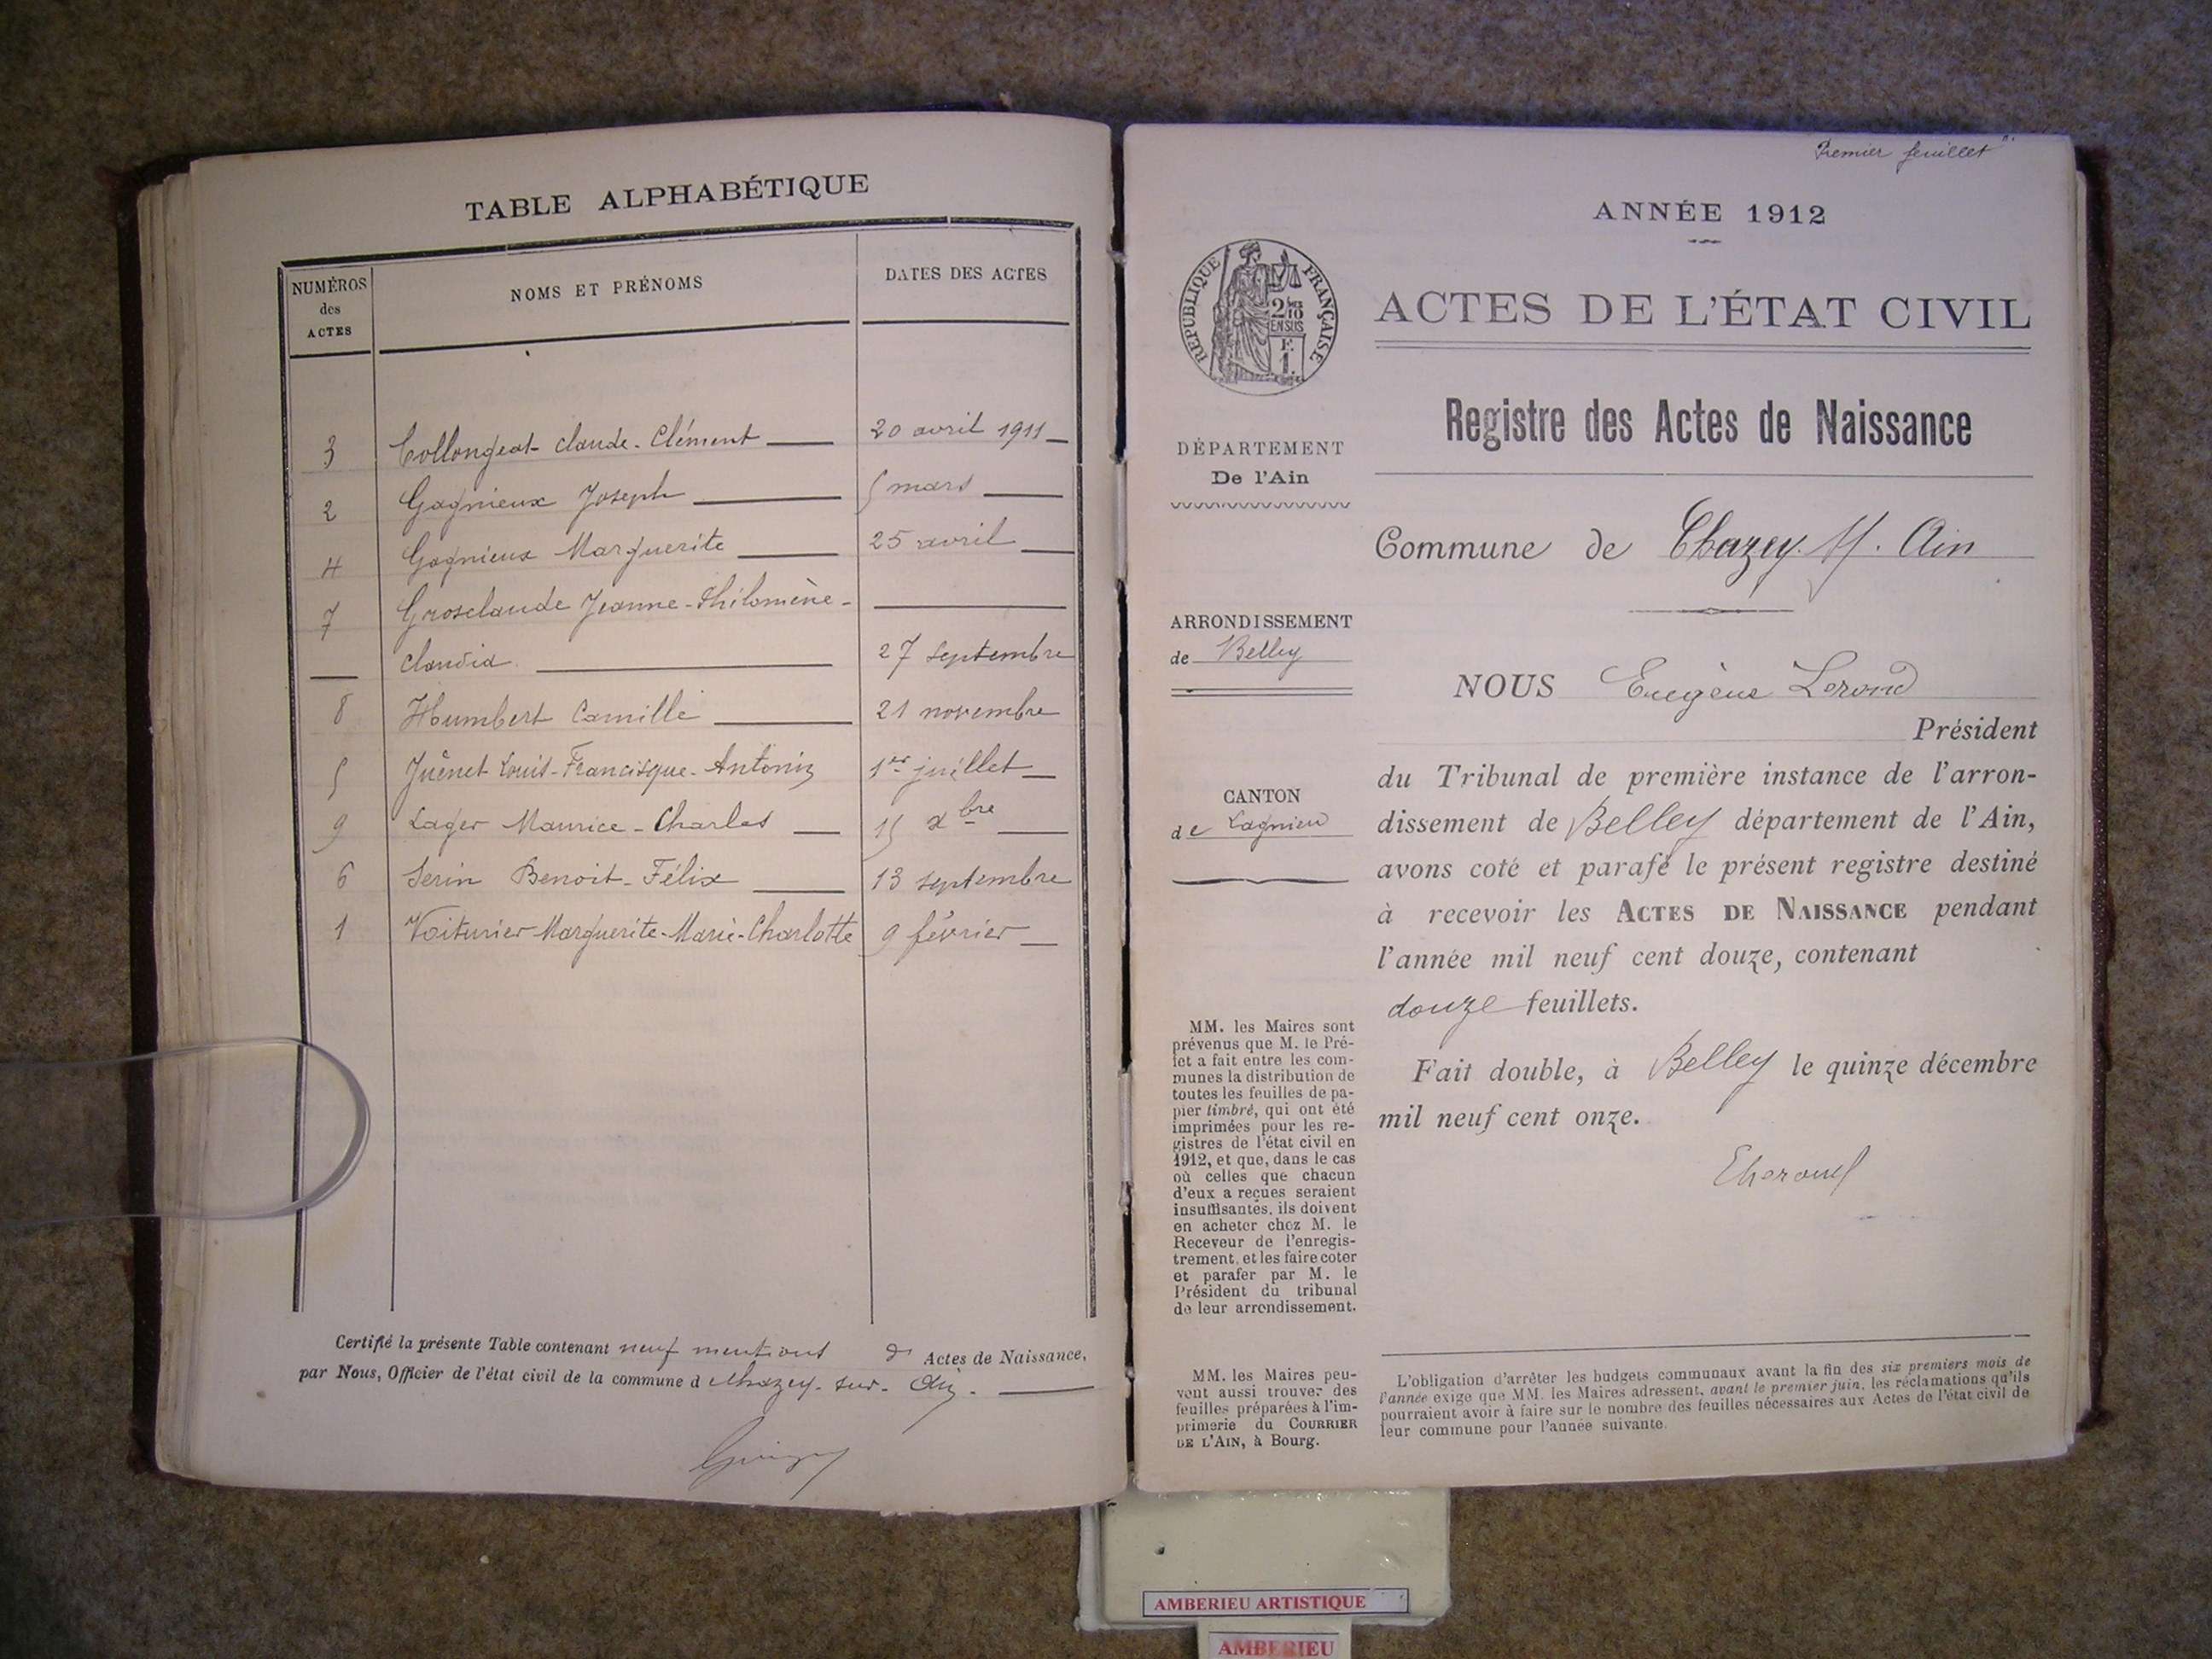 TABLE ALPHABÉTIQUE
NUMÉROS des ACTES
NOMS ET PRÉNOMS
DATES DES ACTES
3 Collongeat Claude-Clément 20 avril 1911
2 Gagnieux Joseph 5 mars
4 Gagnieux Marguerite 25 avril
7 Grosclaude Jeanne-Philomène-
Claudia. 27 septembre
8 Humbert Camille 21 novembre
5 Juênet Louis-Francisque-Antonin 1er juillet
9 Lager Maurice-Charles 15 xbre
6 Serin Benoit-Félix 13 septembre
1 Voiturier Marguerite-Marie-Charlotte 9 février
Certifié la présente Table contenant neuf mentions d' Actes de Naissance,
par Nous, Officier de l'état civil de la commune d Chazey-sur-Ain.
Premier feuillet
ANNÉE 1912
RÉPUBLIQUE FRANÇAISE
2/10 EN SUS
F. 1.
ACTES DE L'ÉTAT CIVIL
Registre des Actes de Naissance
DÉPARTEMENT
De l'Ain
Commune de Chazey-s/-Ain
ARRONDISSEMENT
de Belley
CANTON
de Lagnieu
NOUS Eugène
Président
du Tribunal de première instance de l'arron-
dissement de Belley département de l'Ain,
avons coté et parafé le présent registre destiné
à recevoir les ACTES DE NAISSANCE pendant
l'année mil neuf cent douze, contenant
douze feuillets.
Fait double, à Belley le quinze décembre
mil neuf cent onze.
MM. les Maires sont
prévenus que M. le Pré-
fet a fait entre les com-
munes la distribution de
toutes les feuilles de pa-
pier timbré, qui ont été
imprimées pour les re-
gistres de l'état civil en
1912, et que, dans le cas
où celles que chacun
d'eux a reçues seraient
insuffisantes, ils doivent
en acheter chez M. le
Receveur de l'enregis-
trement, et les faire coter
et parafer par M. le
Président du tribunal
de leur arrondissement.
MM. les Maires peu-
vent aussi trouver des
feuilles préparées à l'im-
primerie du COURRIER
DE L'AIN, à Bourg.
L'obligation d'arrêter les budgets communaux avant la fin des six premiers mois de
l'année exige que MM. les Maires adressent, avant le premier juin, les réclamations qu'ils
pourraient avoir à faire sur le nombre des feuilles nécessaires aux Actes de l'état civil de
leur commune pour l'année suivante.
AMBERIEU ARTISTIQUE
AMBERIEU